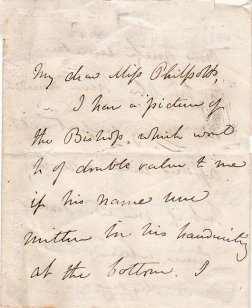 My dear Miss Philpotts,
I have a picture of
the Bishop which would
be of double value to me
if his name were
written in his handwriting
at the bottom. I